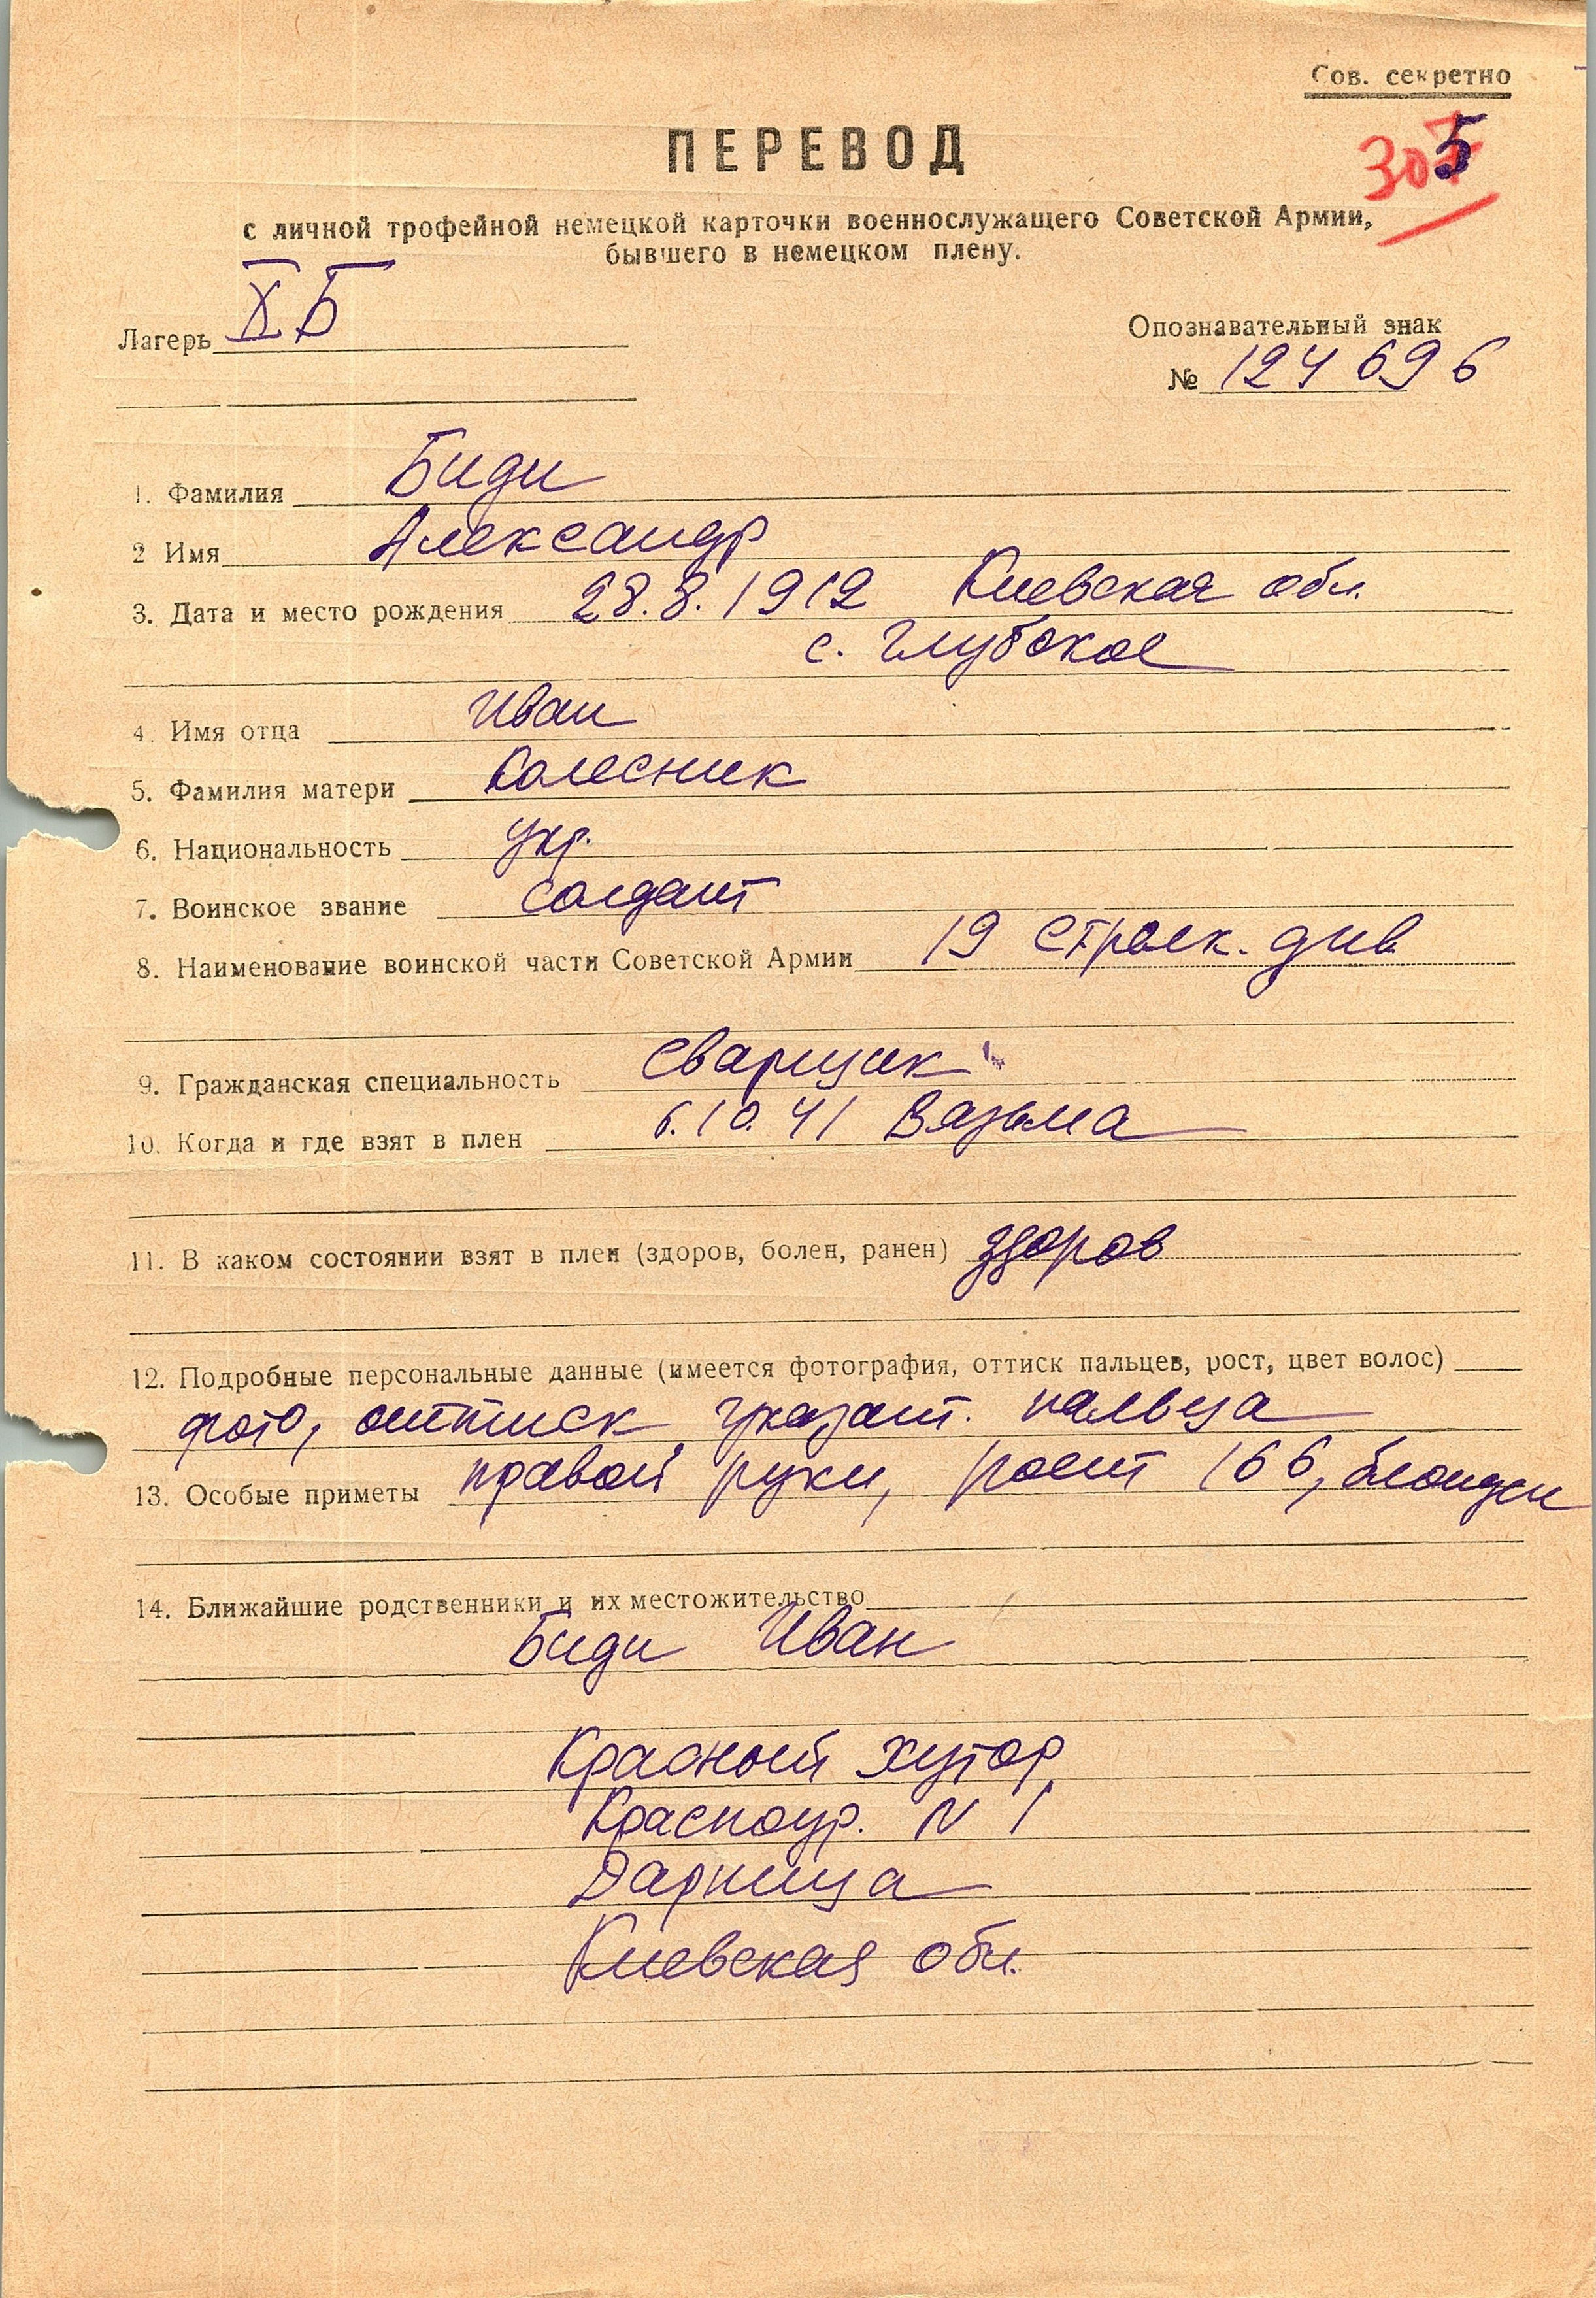 Сов. секретно
ПЕРЕВОД
305
с личной трофейной немецкой карточки военнослужащего Советской Армии,
бывшего в немецком плену.
Лагерь X Б
Опознавательный знак
№ 124 696
1. Фамилия Биди
2 Имя Александр
3. Дата и место рождения 28.8.1912 Киевская обл.
с. Глубокое
4. Имя отца Иван
5. Фамилия матери Колесник
6. Национальность укр.
7. Воинское звание солдат
8. Наименование воинской части Советской Армии 19 стрелк. див
9. Гражданская специальность сварщик
10. Когда и где взят в плен 6.10.41 Вязьма
11. В каком состоянии взят в плен (здоров, болен, ранен) здоров
12. Подробные персональные данные (имеется фотография, оттиск пальцев, рост, цвет волос)
фото, оттиск указат. пальца
13. Особые приметы правой руки, рост 166, блондин
14. Ближайшие родственники и их местожительство
Биди Иван
Красный хутор
N 1
Дарница
Киевская обл.